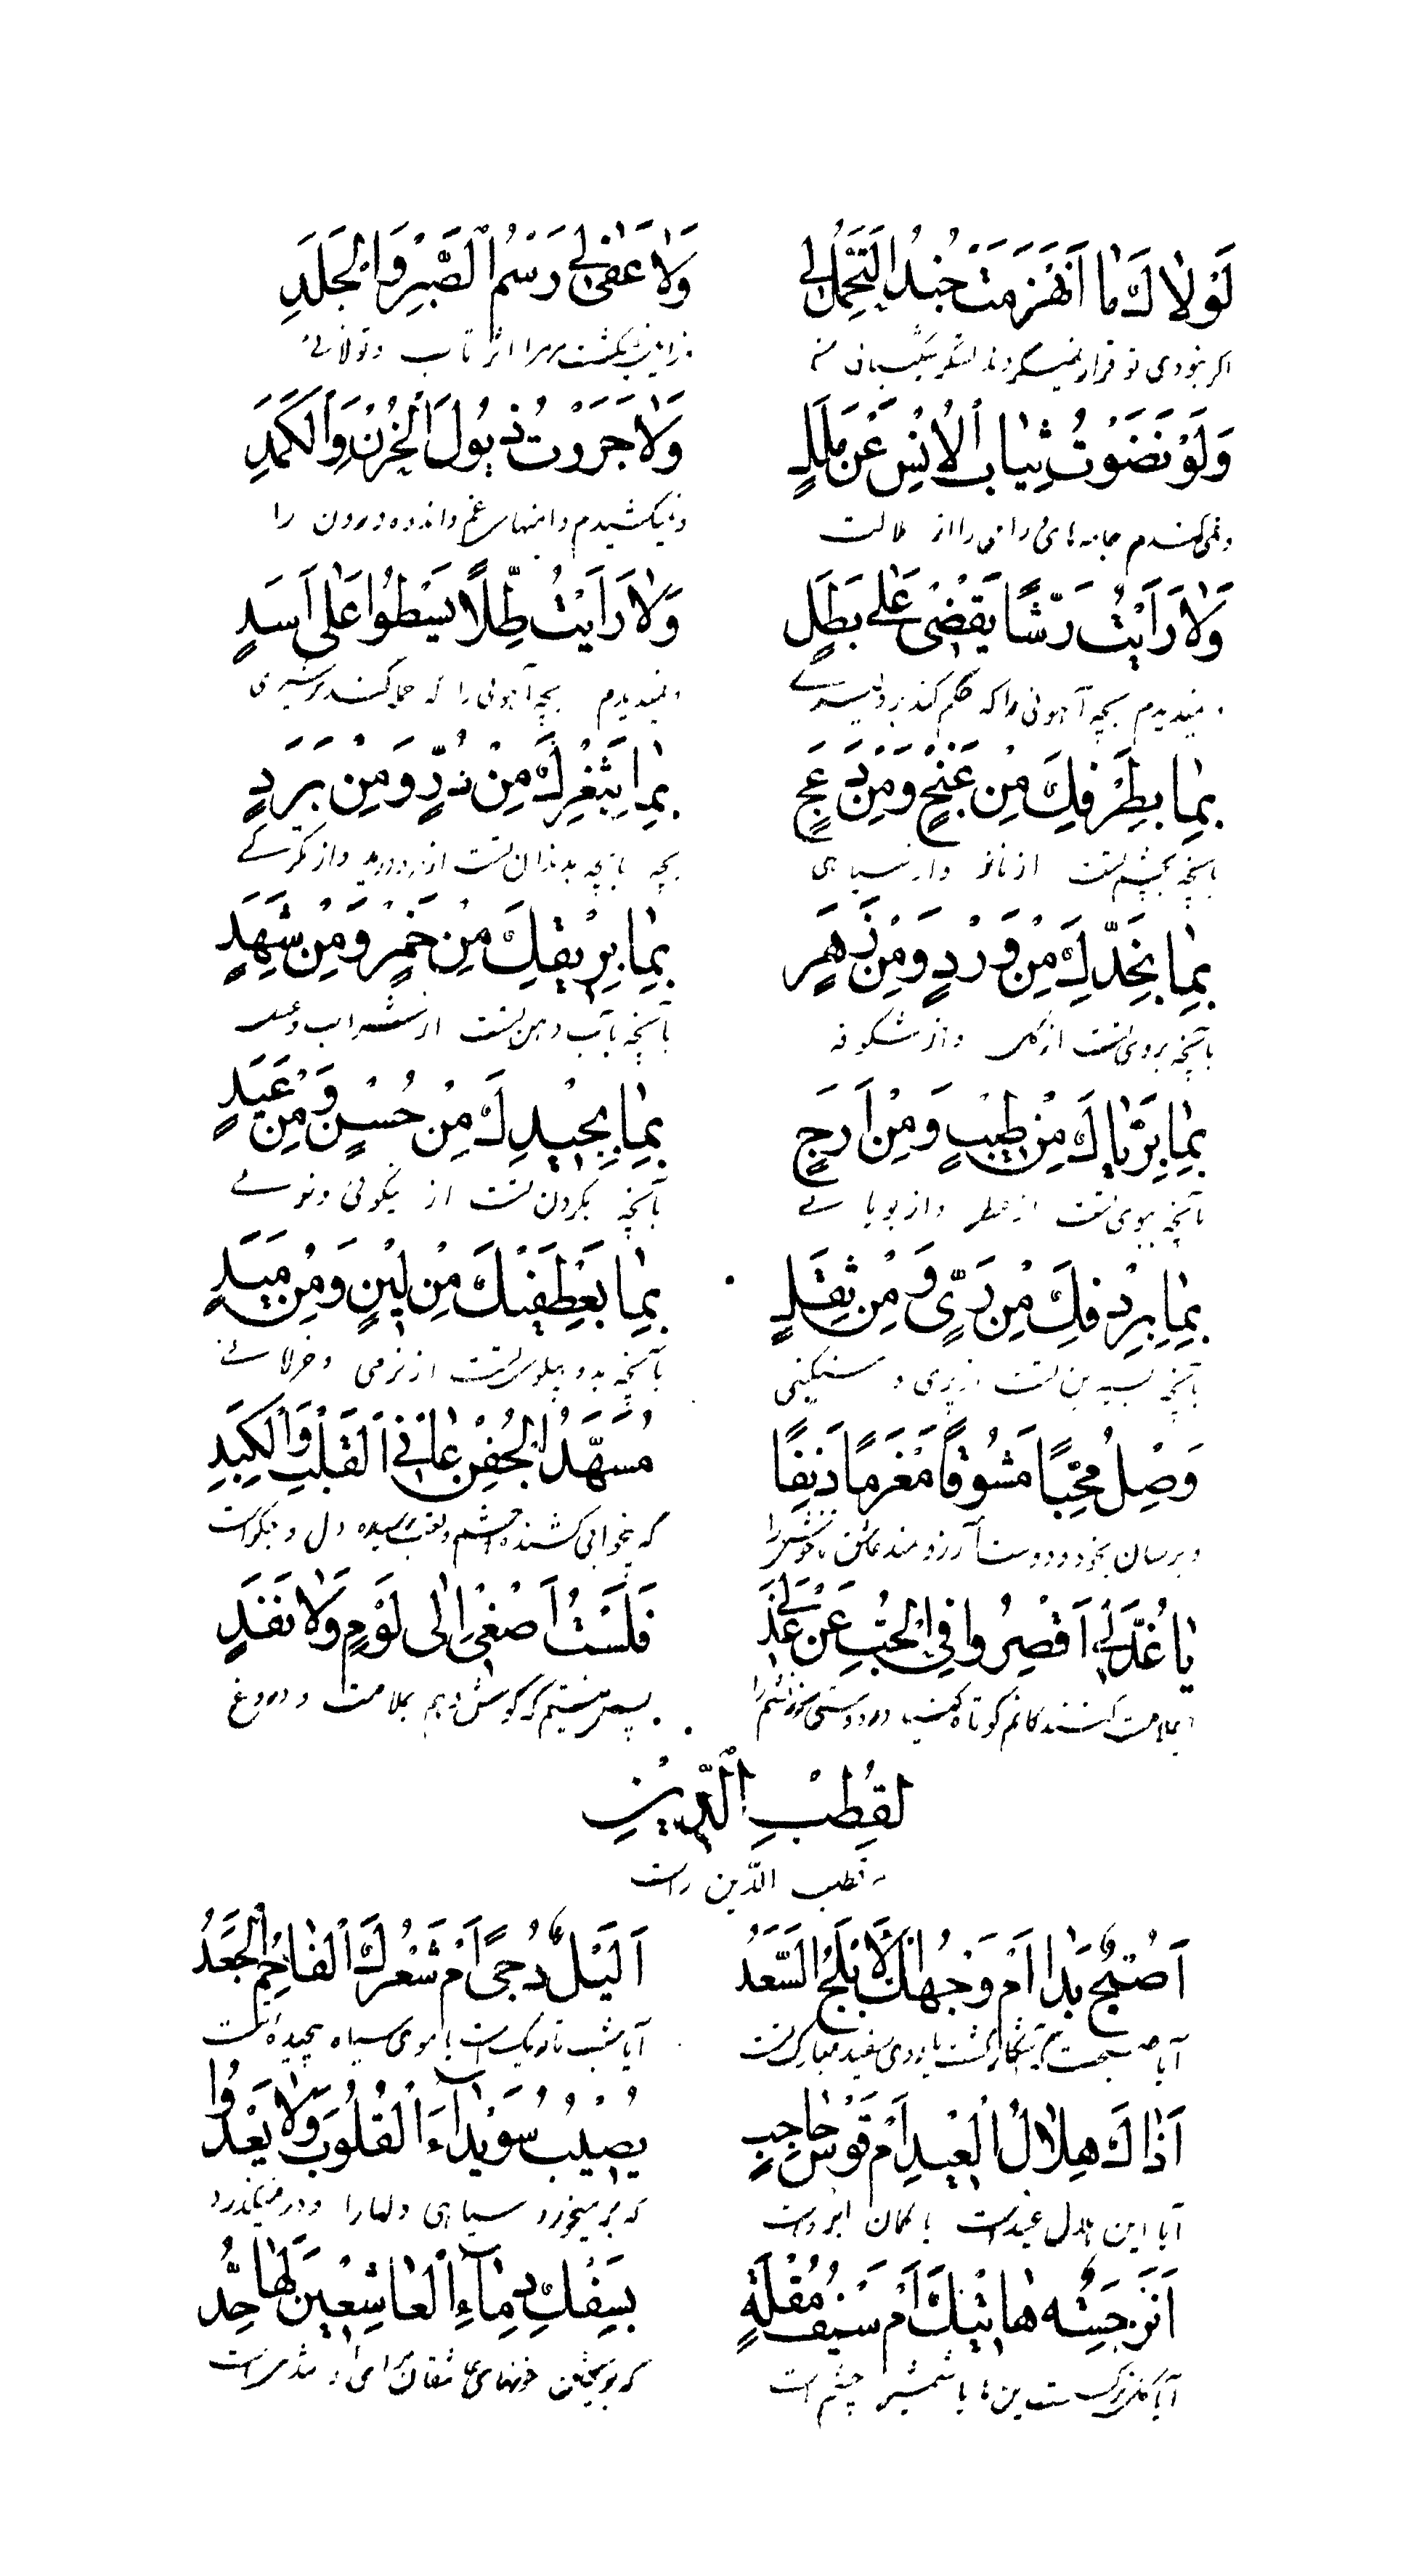 لَوْلَاكَ مَا انْهَزَمَتْ جُنْدُ التَّحَمُّلِ لِي
وَلَا عَفَىٰ لِي رَسْمُ الصَّبْرِ وَالْجَلَدِ
اگر نبودی تو فرار نمیکردند لشکر شکیبائی
اثر تاب و توانائی
وَلَوْ نَضَوْتُ ثِيَابَ الْأُنْسِ عَنْ مَلَلٍ
وَلَا جَرَرْتُ ذُيُولَ الْحُزْنِ وَالْكَمَدِ
و نمی کندم جامه های رامش را از ملالت
و نمیکشیدم دامنهای غم و اندوه درون را
وَلَا رَأَيْتُ رَشًا يَقْضِي عَلَى بَطَلٍ
وَلَا رَأَيْتُ طِلًا يَسْطُوا عَلَى أَسَدٍ
و نمیدیدم بچه آهوئی را که حکم کند بر دلیری
و نمیدیدم بچه آهوئی را که حمله کند بر شیری
بِمَا بِطَرْفِكِ مِنْ غَنَجٍ وَمِنْ دَعَجٍ
بِمَا بِثَغْرِكِ مِنْ دُرٍّ وَمِنْ بَرَدٍ
بآنچه بچشم تست از ناز و از سیاهی
بآنچه بدندان تست از مروارید و از تگرگ
بِمَا بِخَدِّكِ مِنْ وَرْدٍ وَمِنْ زَهَرٍ
بِمَا بِرِيقِكِ مِنْ خَمْرٍ وَمِنْ شَهَدٍ
بآنچه بروی تست از گل و از شکوفه
بآنچه بآب دهن تست از شراب و عسل
بِمَا بِرَيَّاكِ مِنْ طِيْبٍ وَمِنْ أَرَجٍ
بِمَا بِجِيْدِكِ مِنْ حُسْنٍ وَمِنْ غَيَدٍ
بآنچه ببوی تست از عطر و از بویائی
بآنچه بگردن تست از نیکوئی و
بِمَا بِرِدْفِكِ مِنْ رَيٍّ وَمِنْ ثِقَلٍ
بِمَا بِعِطْفَيْكِ مِنْ لِيْنٍ وَمِنْ مَيَدٍ
بآنچه بسرین تست از پری و سنگینی
بآنچه بدو پهلوی تست از نرمی و
وَصِلْ مُحِبًّا مَشُوقًا مُغْرَمًا دَنِفًا
مُسَهَّدَ الْجَفْنِ عَانِي الْقَلْبِ وَالْكَبِدِ
و برسان بخود دوست آرزومند عاشق
دل و جگر است
يَا عُذَّلِي أَقْصِرُوا فِي الْحُبِّ عَنْ عَذَلِي
فَلَسْتُ أَصْغِي إِلَى لَوْمٍ وَلَا نَفَدٍ
ملامت کنندگانم کوتاه کنید در دوستی
پس نیستم که گوش دهم بملامت و دروغ
لِقُطْبِ الدِّينِ
قطب الدّین راست
أَصُبْحٌ بَدَا أَمْ وَجْهُكَ الْأَبْلَجُ السَّعْدُ
أَلَيْلٌ دُجًى أَمْ شَعْرُكَ الْفَاحِمُ الْجَعْدُ
آیا صبحست آشکار گشت یا روی سفید مبارک تست
آیا شب تاریکست یا موی سیاه پیچیده تست
أَذَاكَ هِلَالُ الْعِيْدِ أَمْ قَوْسُ حَاجِبٍ
يُصِيْبُ سُوَيْدَاءَ الْقُلُوبِ وَلَا يَعْدُوا
آیا این هلال عید است یا کمان ابرو است
که بر میخورد سیاهی دلها را و در نمیگذرد
أَنَرْجِسَةٌ هَاتِيْكَ أَمْ سَيْفُ مُقْلَةٍ
بِسَفْكِ دِمَاءِ الْعَاشِقِينَ لَهَا حَدُّ
آیا نرگس است این یا شمشیر چشم است
که بریختن خونهای عاشقان